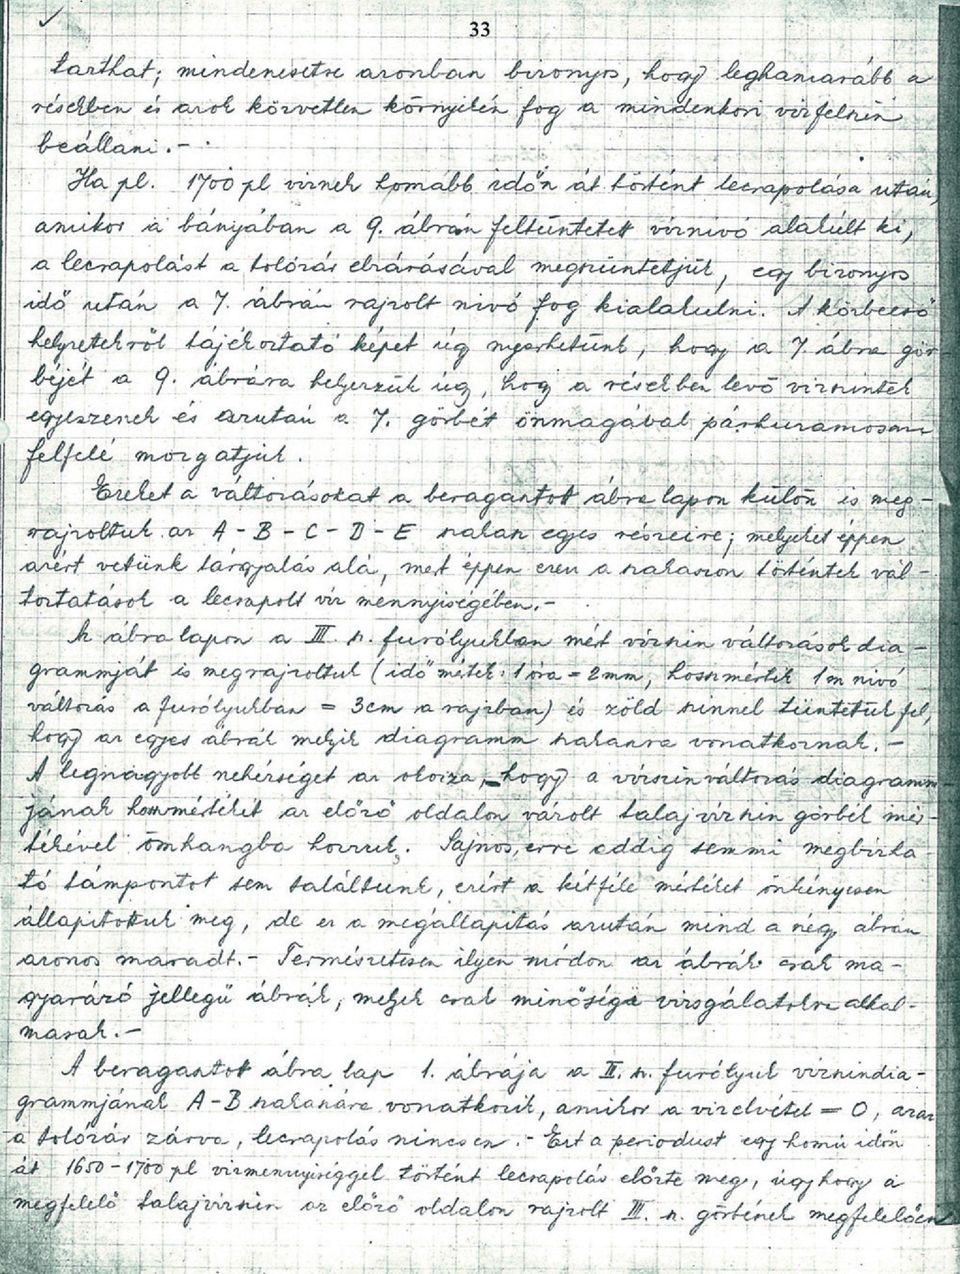 33
tarthat; mindenesetre azonban bizonyos, hogy leghamarább a
résekben és azok közvetlen környékén fog a mindenkori vízfelszín
beállani.-
Ha pl. 1700 pl víznek hosszabb időn át történt lecsapolása után,
amikor a bányában a 9. ábrán feltüntetett víznívó alakúlt ki,
a lecsapolást a tolózár elzárásával megszüntetjük, egy bizonyos
idő után a 7. ábrán rajzolt nívó fog kialakulni. A közbeeső
helyzetekről tájékoztató képet úgy nyerhetünk, hogy a 7. ábra gör-
béjét a 9. ábrára helyezzük úgy, hogy a résekben levő vízszintek
egyezzenek és azután a 7. görbét önmagával párhuzamosan
felfelé mozgatjuk.
Ezeket a változásokat a beragasztott ábra lapon külön is meg-
rajzoltuk az A-B-C-D-E szakasz egyes részeire; melyeket éppen
azért vetünk tárgyalás alá, mert éppen ezen a szakaszon történtek vál-
toztatások a lecsapolt víz mennyiségében.-
Az ábra lapon a III. sz. furólyukban mért vízszin változások dia-
grammját is megrajzoltuk (idő mérték: 1 óra = 2mm, hosszmérték 1m nívó
változás a furólyukban = 3cm a rajzban) és zöld szinnel tüntetük fel,
hogy az egyes ábrák melyik diagramm szakaszra vonatkoznak.-
A legnagyobb nehézséget az okozza, hogy a vízszinváltozás diagramm-
jának hosszmértékét az előző oldalon vázolt talajvízszin görbék mér-
tékével összhangba hozzuk. Sajnos, erre eddig semmi megbízha-
tó támpontot sem találtunk, ezért a kétféle mértéket önkényesen
állapítottuk meg, de ez a megállapítás azután mind a négy ábrán
azonos maradt.- Természetesen ilyen módon az ábrák csak ma-
gyarázó jellegű ábrák, melyek csak minőségi vizsgálatokra alkal-
masak.-
A beragasztott ábra lap 1. ábrája a II. sz. furólyuk vízszindia-
grammjának A-B szakaszára vonatkozik, amikor a vízelvétel = 0, azaz
a tolózár zárva, lecsapolás nincsen.- Ezt a periodust egy hosszú időn
át 1650-1700 pl vízmennyiséggel történt lecsapolás előzte meg, úgy hogy a
megfelelő talajvízszin az előző oldalon rajzolt III. sz. görbének megfelelően